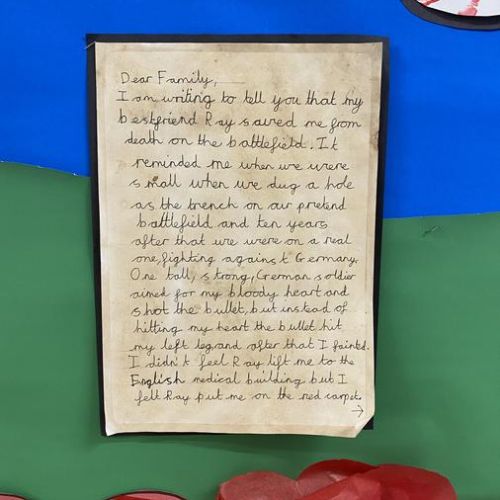 Dear Family,
I am writing to tell you that my
bestfriend Ray saved me from
death on the battlefield. It
reminded me when we were
small when we dug a hole
as the trench on our pretend
battlefield and ten years
after that we were on a real
one, fighting against Germany.
One tall, strong, German soldier
aimed for my bloody heart and
shot the bullet, but instead of
hitting my heart the bullet hit
my left leg and after that I fainted.
I didn't feel Ray lift me to the
English medical building but I
felt Ray put me on the red carpet.
→